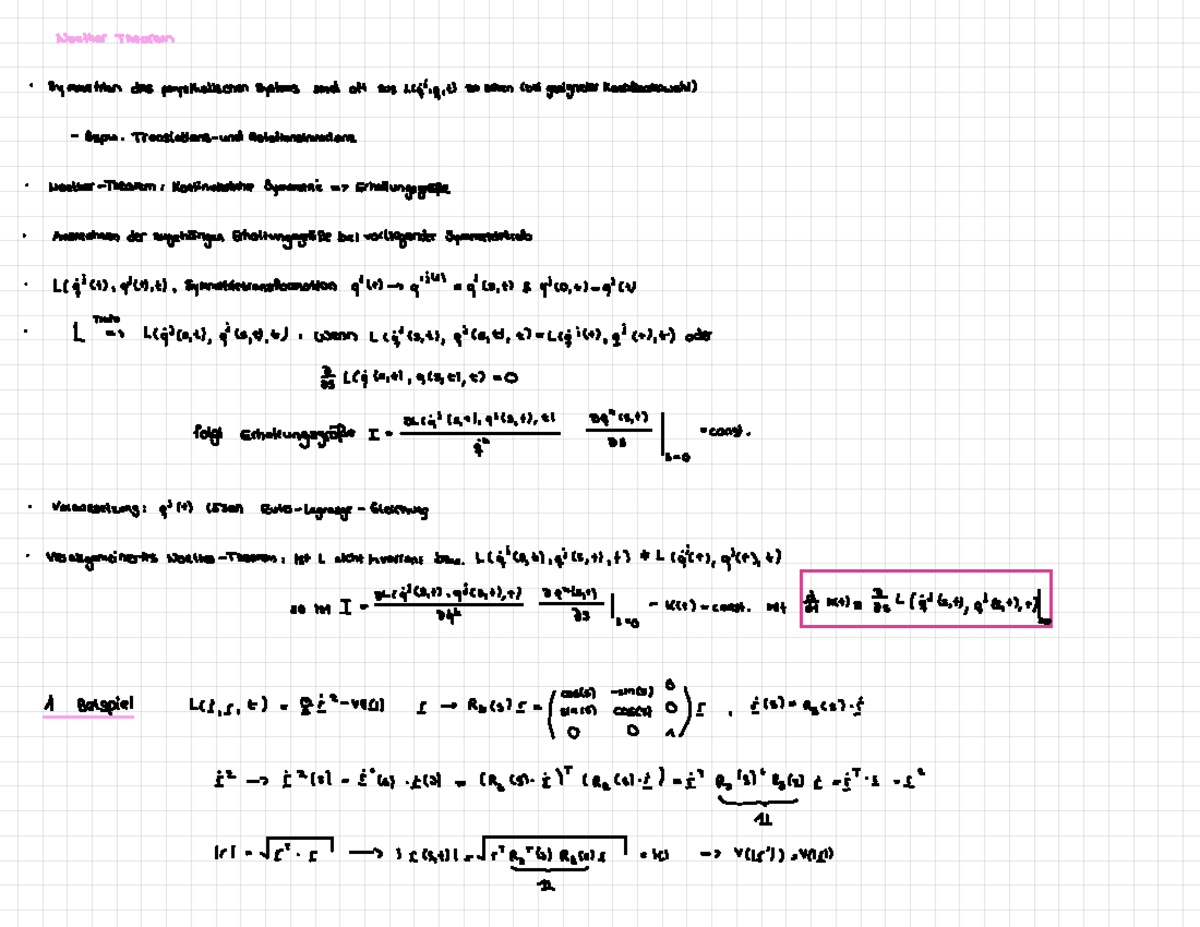 Noether Theorem
· Symmetrien des physikalischen Systems sind oft aus L(q̇ʲ,q,t) zu sehen (bei geeigneter Koordinatenwahl)
- Bspw. Translations-und Rotationsinvarianz
· Noether-Theorem: Kontinuierliche Symmetrie => Erhaltungsgröße
· Ausrechnen der zugehörigen Erhaltungsgröße bei vorliegender Symmetrietrafo
· L(q̇ʲ(t), qʲ(t),t), Symmetrietransformation qʲ(t) → q'ʲ(t) = qʲ(s,t) & qʲ(0,t)=qʲ(t)
· L Trafo => L(q̇ʲ(s,t), qʲ(s,t),t). Wenn L(q̇ʲ(s,t), qʲ(s,t), t)=L(q̇ʲ(t), qʲ(t),t) oder
∂/∂s L(q̇(s,t), q(s,t), t) =0
folgt Erhaltungsgröße I = ∂L(q̇ʲ(s,t), qʲ(s,t), t) / q̇ᵏ ∂qᵏ(s,t)/∂s |s=0 =const.
· Voraussetzung: qʲ(t) lösen Euler-Lagrange-Gleichung
· Verallgemeinertes Noether-Theorem: Ist L nicht invariant bzw. L(q̇ʲ(s,t), qʲ(s,t), t) ≠ L(q̇ʲ(t), qʲ(t), t)
so ist I = ∂L(q̇ʲ(s,t), qʲ(s,t), t)/∂q̇ᵏ ∂qᵏ(s,t)/∂s |s=0 - K(t) = const. mit d/dt K(t) = ∂/∂s L(q̇ʲ(s,t), qʲ(s,t), t)|s=0
1 Beispiel L(ṙ, r, t) = m/2 ṙ² - V(|r|) r → R₃(s) r = (cos(s) -sin(s) 0 sin(s) cos(s) 0 0 0 1) r , ṙ(s) = R₃(s)·ṙ
ṙ² → ṙ²(s) = ṙᵀ(s)·ṙ(s) = (R₃(s)·ṙ)ᵀ (R₃(s)·ṙ) = ṙᵀ R₃(s)ᵀ R₃(s) ṙ = ṙᵀ·ṙ = ṙ²
𝟙
|r| = √rᵀ·r → |r(s,t)| = √rᵀ R₃ᵀ(s) R₃(s) r = |r| => V(|r'|) = V(|r|)
𝟙